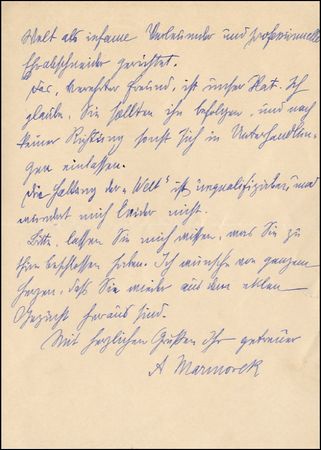 Welt als infame Verleumder und professionelle
Ehrabschneider gerichtet.
Das, verehrter Freund, ist unser Rat. Ich
glaube, Sie sollten ihn befolgen, und nach
keiner Richtung sonst sich in Unterhandlun-
gen einlassen.
Die Haltung der „Welt“ ist unqualifizierbar, und
wundert mich leider nicht.
Bitte, lassen Sie mich wissen, was Sie zu
thun beschlossen haben. Ich wünsche von ganzem
Herzen, daß Sie wieder aus dem eklen
Gezücht heraus sind.
Mit herzlichen Grüßen Ihr getreuer
A Marmorek